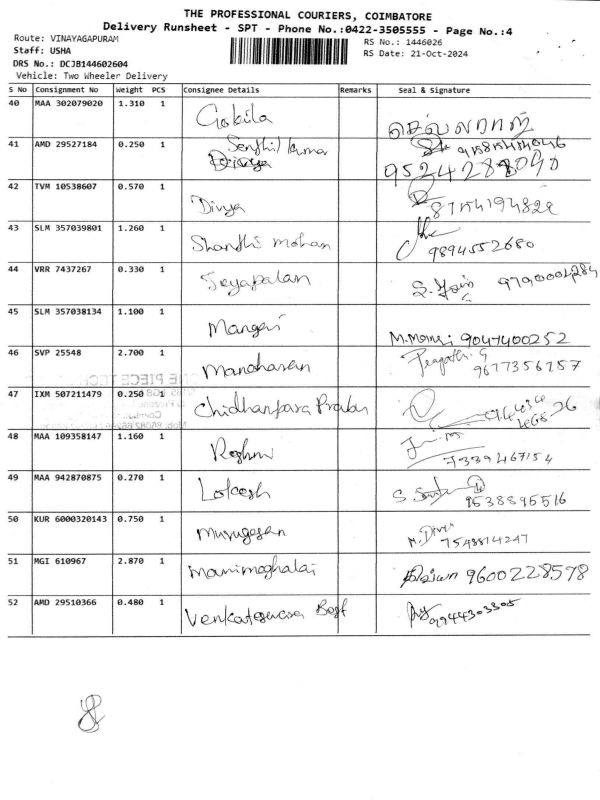 THE PROFESSIONAL COURIERS, COIMBATORE
Delivery Runsheet - SPT - Phone No.:0422-3505555 - Page No.:4
Route: VINAYAGAPURAM
RS No.: 1446026
Staff: USHA
RS Date: 21-Oct-2024
DRS No.: DCJB144602604
Vehicle: Two Wheeler Delivery
S No Consignment No Weight PCS Consignee Details Remarks Seal & Signature
40 MAA 302079020 1.310 1 Gokila செல்வராஜ்
41 AMD 29527184 0.250 1 Senthil Kumar
Divya
42 TVM 10538607 0.570 1 Divya
43 SLM 357039801 1.260 1 Shanthi mohan 9894552680
44 VRR 7437267 0.330 1 Jeyapalan 9790004284
45 SLM 357038134 1.100 1 Mangai 9047400252
46 SVP 25548 2.700 1 Manoharan 9677356757
47 IXM 507211479 0.250 1
48 MAA 109358147 1.160 1 7339467154
49 MAA 942870875 0.270 1 Lokesh 9538895516
50 KUR 6000320143 0.750 1 Murugesan 7548814247
51 MGI 610967 2.870 1 Manimeghalai 9600228578
52 AMD 29510366 0.480 1 Venkateswara 9944303305